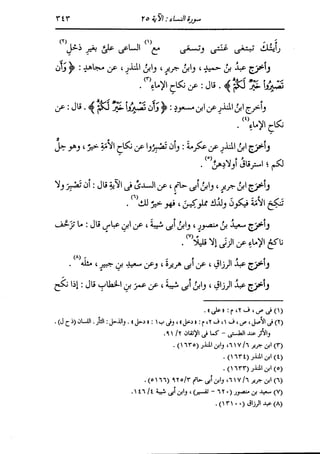 سورة النساء : الآية ٢٥ ٣٤٣
رأيتك تبتغى عنتى وتسعى مع(١) الساعى علىَّ بغير ذحلِ(٢)
وأخرج عبدُ بنُ حميدٍ، وابنُ جريرٍ، وابنُ المنذرِ، عن مجاهدٍ: ﴿وَأَن
تَصْبِرُوا خَيْرٌ لَّكُمْ﴾. قال: عن نكاحِ الإماءِ(٣).
وأخرج ابنُ المنذرِ عن ابنِ مسعودٍ: ﴿وَأَن تَصْبِرُوا خَيْرٌ لَّكُمْ﴾. قال: عن
نكاحِ الإماءِ(٤).
وأخرج ابنُ المنذرِ عن عكرمةَ: وأن تصبِروا عن نكاحِ الأمةِ خيرٌ، وهو حِلٌّ
لكم؛ استرقاقُ أولادِهنَّ(٥).
وأخرج ابنُ جريرٍ، وابنُ أبى حاتمٍ، عن السدىِّ فى الآيةِ قال: أن تصبِرَ ولا
تنكِحَ الأمةَ فيكونَ ولدُك مملوكين، فهو خيرٌ لك(٦).
وأخرج سعيدُ بنُ منصورٍ، وابنُ أبى شيبةَ، عن ابنِ عباسٍ قال: ما تزَحَّف
ناكحُ الإماءِ عن الزنى إلا قليلًا(٧).
وأخرج عبدُ الرزاقِ، عن أبى هريرةَ، وعن سعيدِ بنِ جبيرٍ، مثلَه(٨).
وأخرج عبدُ الرزاقِ، وابنُ أبى شيبةَ، عن عمرَ بنِ الخطابِ قال: إذا نكَح
(١) فى ص، ف ٢، م: «على».
(٢) فى الأصل، ص، ف ١، ف ٢، م: «دخل»، وفى ب ١: «دحل». والذحل: الثأر. اللسان (ذ ح ل).
والأثر عند الطستى - كما فى الإتقان ٢/ ٩١.
(٣) ابن جرير ٦/ ٦١٧، وابن المنذر (١٦٣٥).
(٤) ابن المنذر (١٦٣٤).
(٥) ابن المنذر (١٦٣٣).
(٦) ابن جرير ٦/ ٦١٧، وابن أبى حاتم ٣/ ٩٢٥ (٥١٦٦).
(٧) سعيد بن منصور (٦٢٠ - تفسير)، وابن أبى شيبة ٤/ ١٤٦.
(٨) عبد الرزاق (١٣١٠٠).